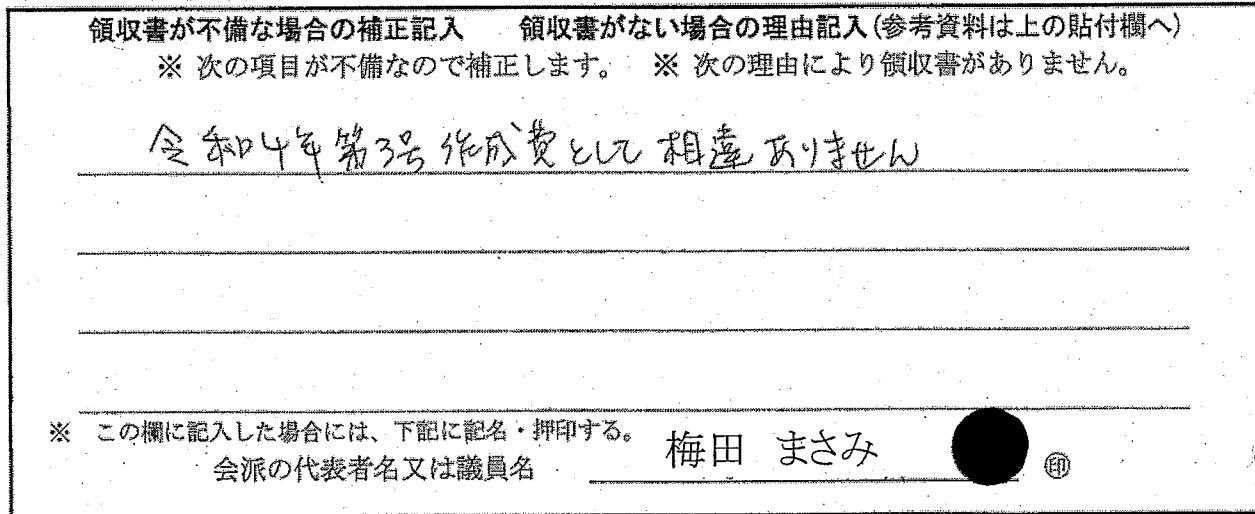 領収書が不備な場合の補正記入　領収書がない場合の理由記入(参考資料は上の貼付欄へ)
※ 次の項目が不備なので補正します。　※ 次の理由により領収書がありません。
令和4年第3号作成費として相違ありません
※　この欄に記入した場合には、下記に記名・押印する。
会派の代表者名又は議員名　梅田 まさみ　㊞